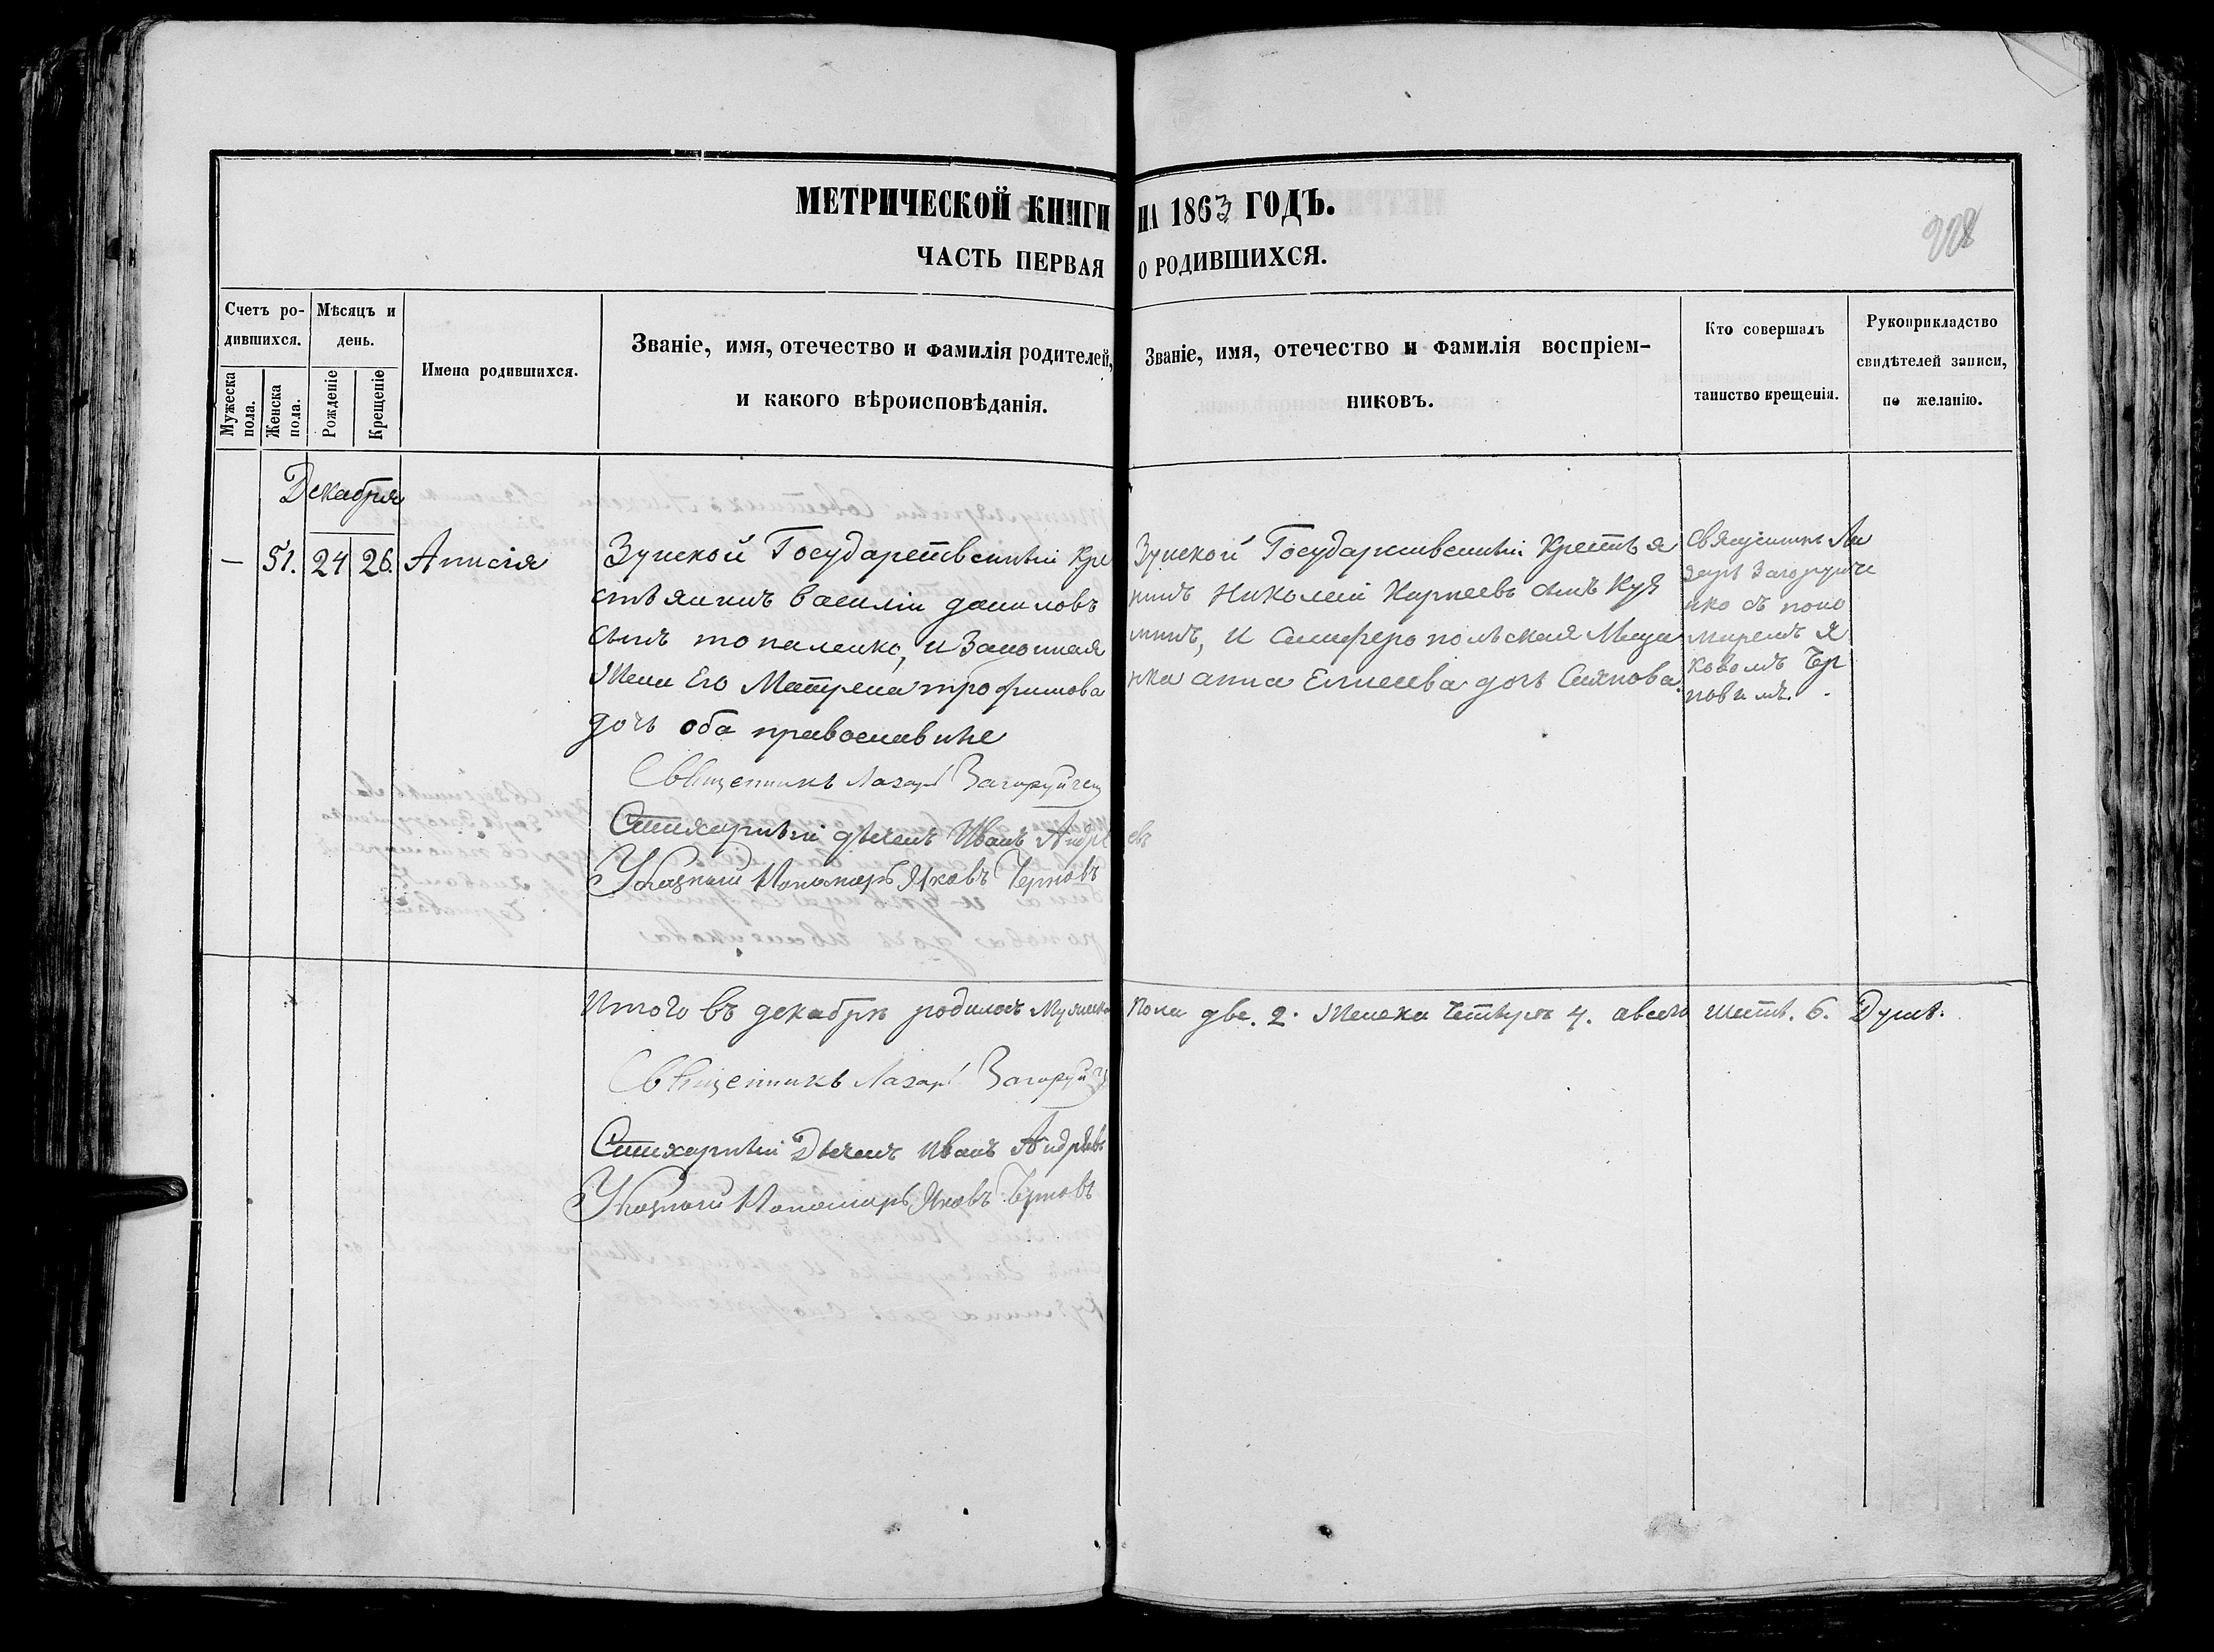 МЕТРИЧЕСКОЙ КНИГИ НА 1863 ГОДЪ.
ЧАСТЬ ПЕРВАЯ О РОДИВШИХСЯ.
228
Счетъ ро-
дившихся.
Мужеска
пола.
Женска
пола.
Мѣсяцъ и
день.
Рожденіе
Крещеніе
Имена родившихся.
Званіе, имя, отечество и фамилія родителей,
и какого вѣроисповѣданія.
Званіе, имя, отечество и фамилія воспріем-
никовъ.
Кто совершалъ
таинство крещенія.
Рукоприкладство
свидѣтелей записи,
по желанію.
Декабря
— 51. 24 26. Анисія
Зуйской Государственный Кре
стьянинъ Василій Даниловъ
сынъ Топаленко, и Законная
Жена Его Матрена Трофимова
дочь оба православные
Священникъ Лазарь Загоруйченко
Стихарный дьячекъ Иванъ Андреевъ
Указный Пономарь Яковъ Черновъ
Зуйской Государственный Крестья
нинъ Николай Карпеевъ сынъ Куз
минъ, и Симферопольская Меща
нка Анна Елисеева дочь Саянова.
Священникъ Ла
зарь Загоруйче
нко съ поно
маремъ Я
ковомъ Чер
новымъ.
Итого въ декабрѣ родилось Мужеска Пола две. 2. Женска Четыре 4. а всего шесть. 6. Душъ.
Священникъ Лазарь Загоруйч
Стихарный Дьячекъ Иванъ Андреевъ
Указный Пономарь Яковъ Черновъ